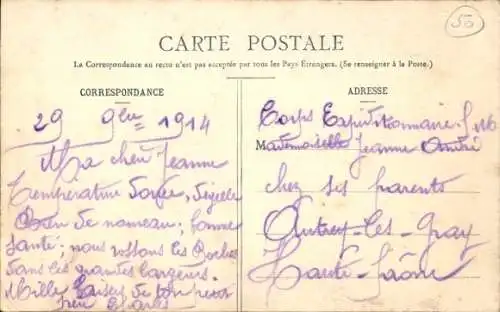 50
CARTE POSTALE
La Correspondance au recto n'est pas acceptée par tous les Pays Étrangers. (Se renseigner à la Poste.)
CORRESPONDANCE
29 9bre 1914
Ma cher Jeanne
Température
Rien de nouveau; bonne
santé; nous rossons les Boches
dans les grandes largeurs.
Mille baisers de ton petit
frère Charles
ADRESSE
Corps Expéditionnaire
Mademoiselle Jeanne André
chez ses parents
Autrey-les-Gray
Haute-Saône